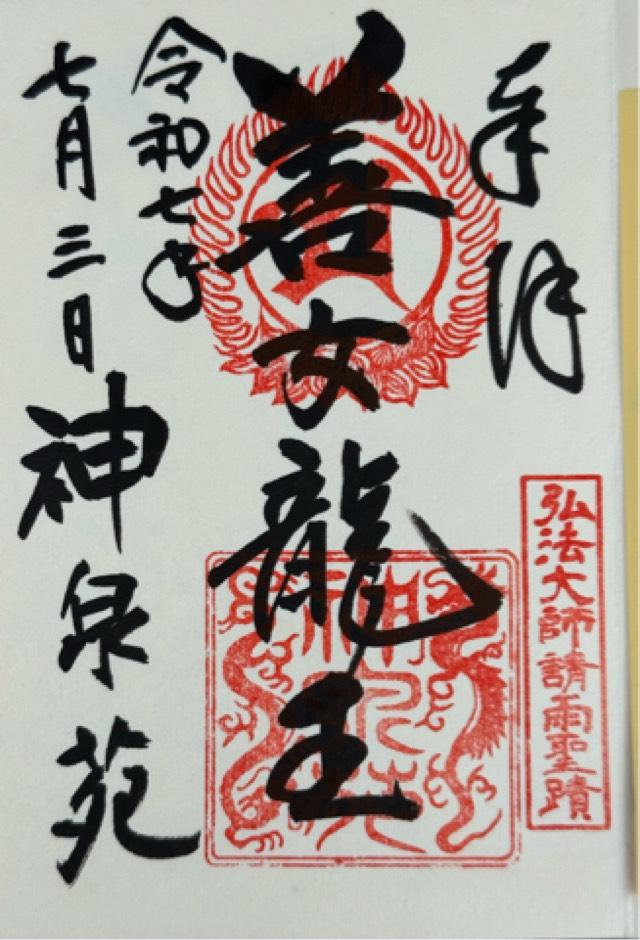 奉拝
弘法大師請雨聖蹟
善女龍王
令和七年
七月三日
神泉苑